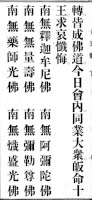 轉皆成佛道今日會內同業大衆皈命十
王求哀懺悔
南無釋迦牟尼佛
南無阿彌陀佛
南無無量壽佛
南無彌勒尊佛
南無藥師光佛
南無熾盛光佛